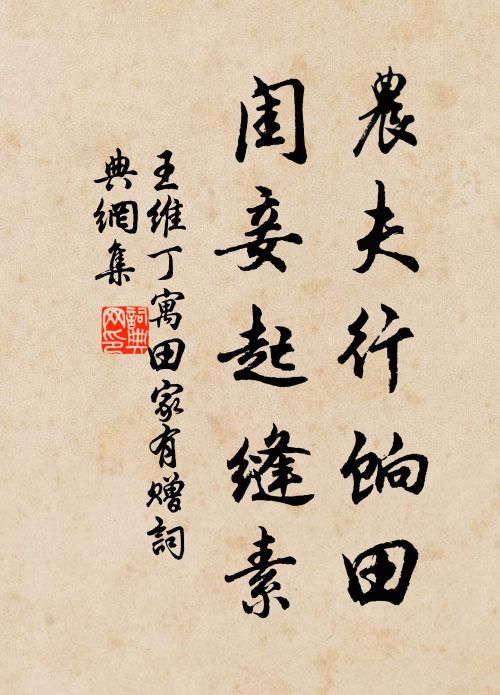 農夫行餉田
閨妾起縫素
王維丁寓田家有贈詞
典網集
詞典
网印